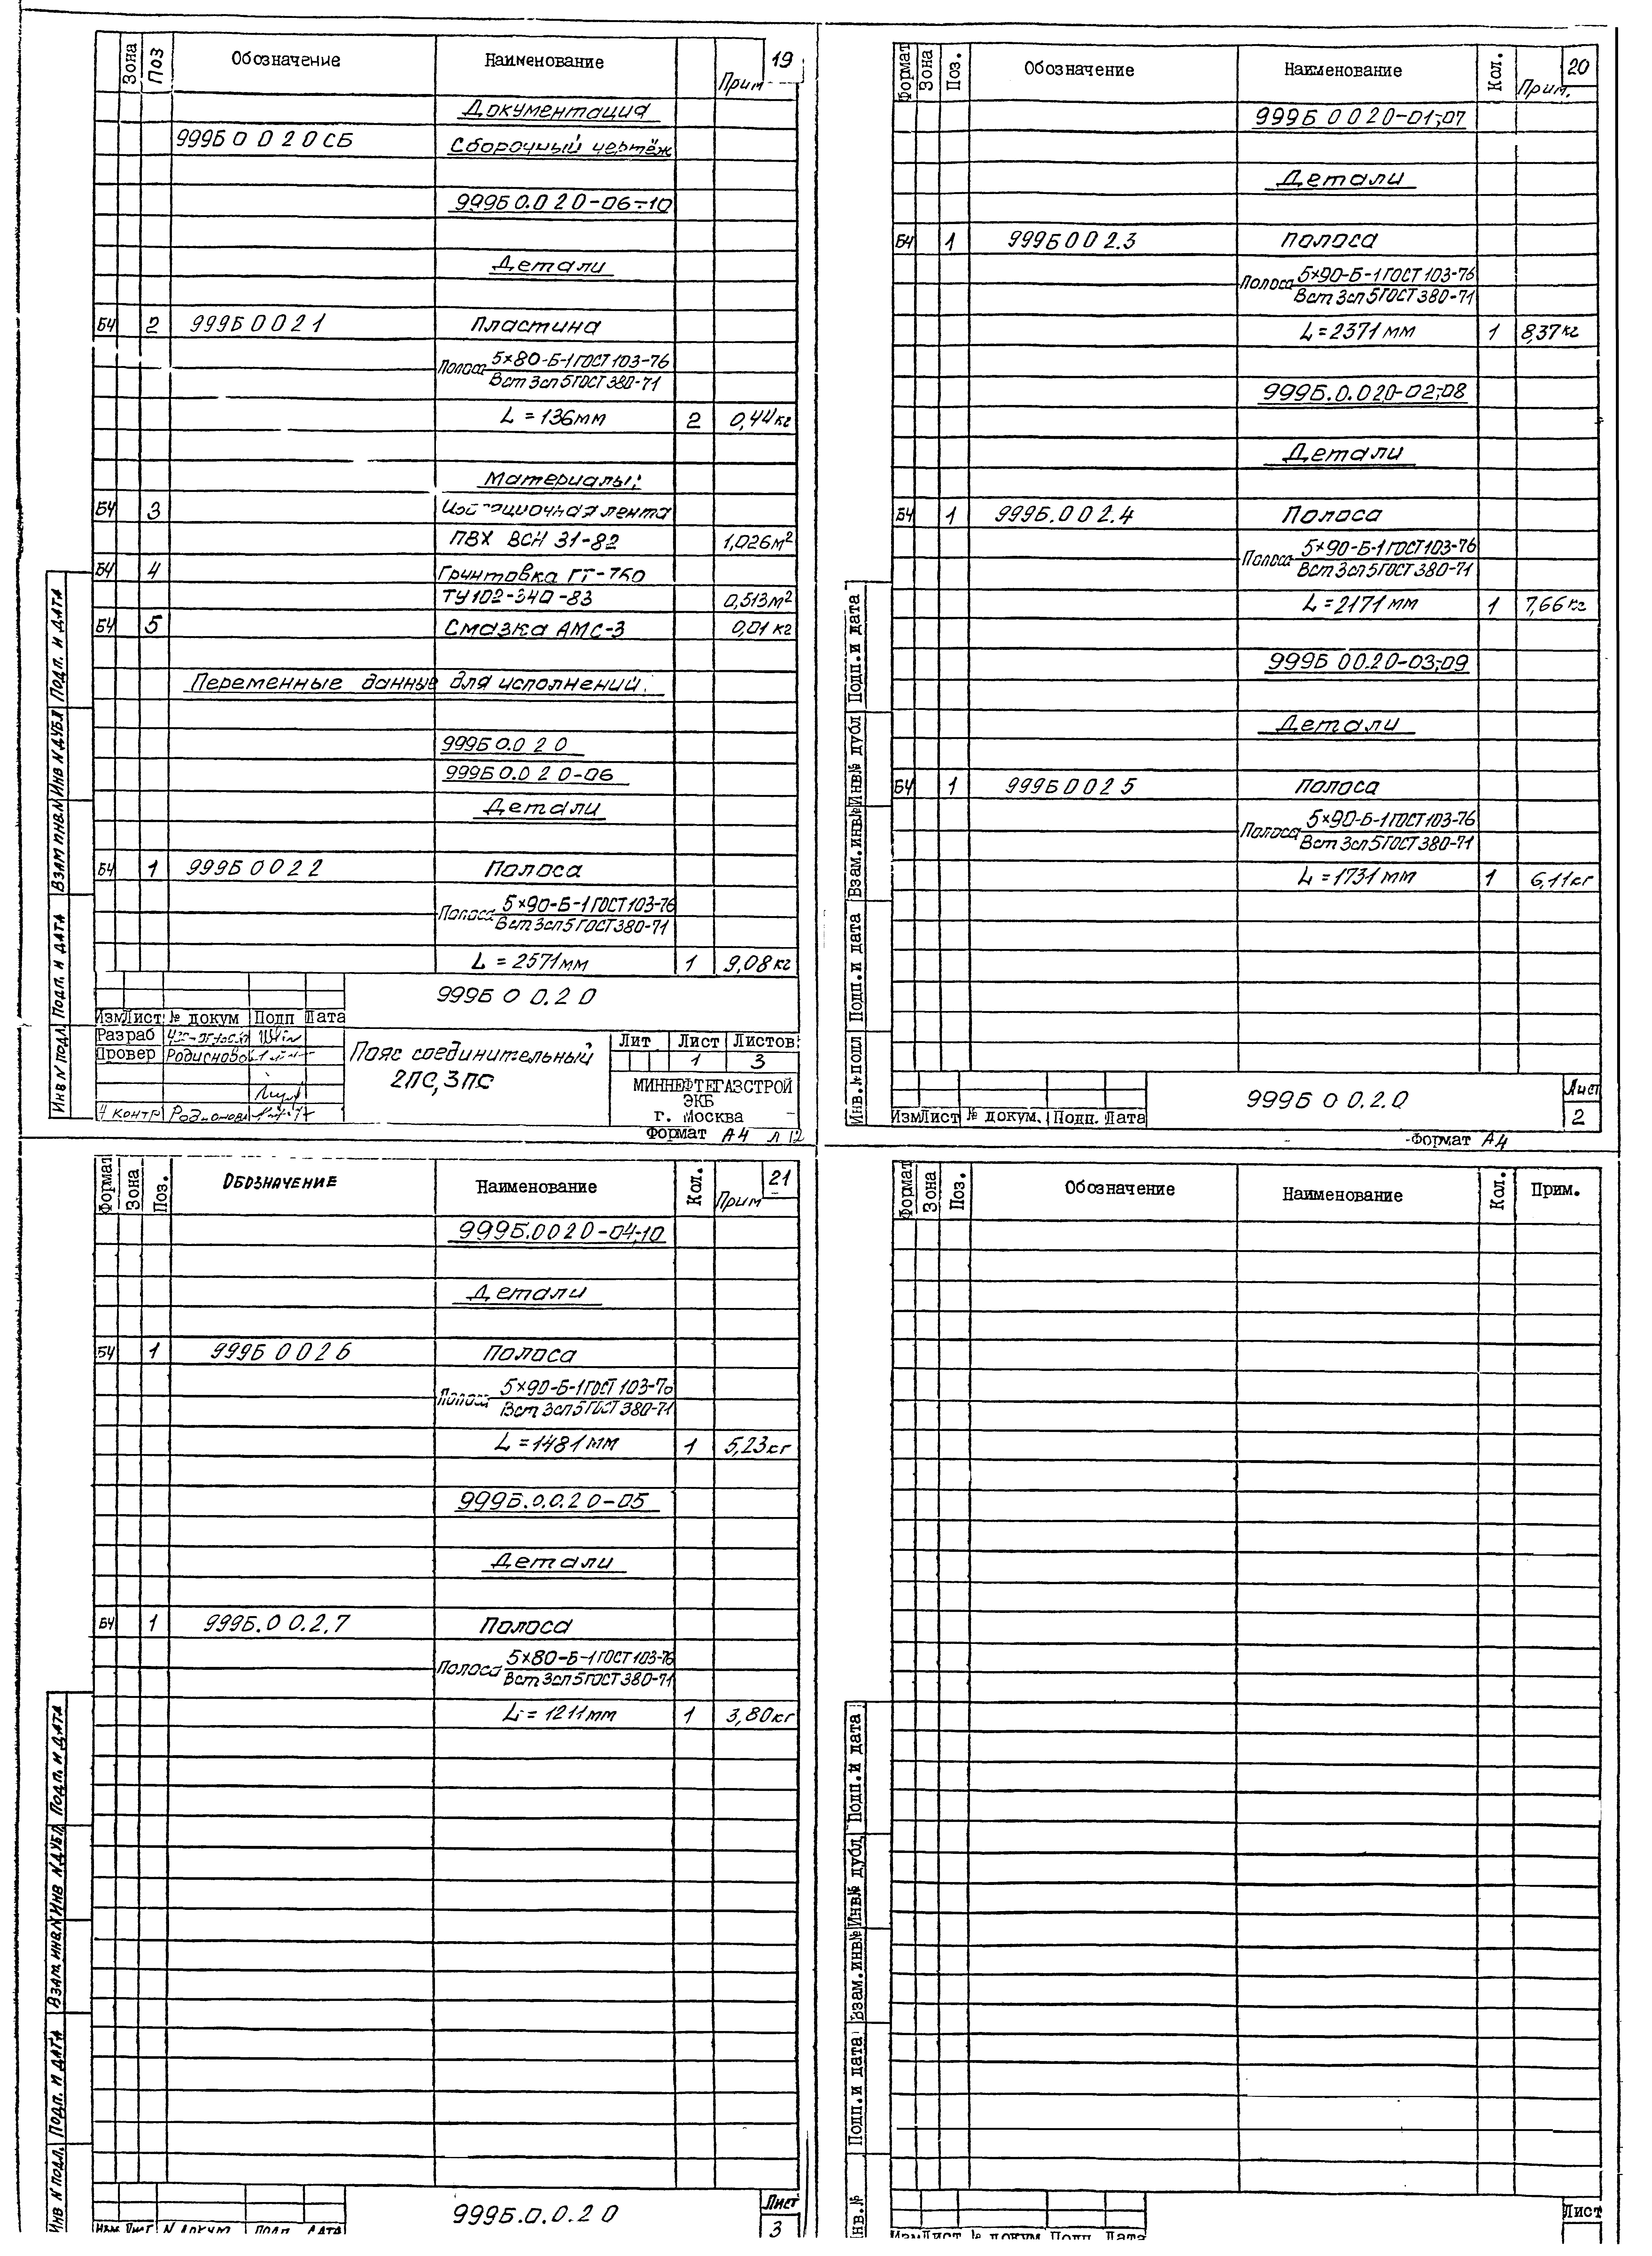 Зона Поз Обозначение Наименование Прим 19
Документация
999Б 0 0 2 0 СБ Сборочный чертёж
999Б 0.0 2 0-06÷10
Детали
БЧ 2 999Б 0 0 2 1 Пластина
Полоса 5×80-Б-1 ГОСТ 103-76
Вст 3сп 5 ГОСТ 380-71
L = 136мм 2 0,44кг
Материалы:
БЧ 3 лента
ПВХ ВСН 31-82 1,026м²
БЧ 4 Грунтовка ГТ-760
ТУ102-340-83 0,513м²
БЧ 5 Смазка АМС-3 0,01 кг
Переменные данные для исполнений.
999Б 0.0 2 0
999Б 0.0 2 0-06
Детали
БЧ 1 999Б 0 0 2 2 Полоса
Полоса 5×90-Б-1 ГОСТ 103-76
Вст 3сп 5 ГОСТ 380-71
L = 2571мм 1 9,08кг
999Б 0 0.2 0
Изм Лист № докум Подп Дата
Разраб
Провер Родионова
Н контр Родионова
Пояс соединительный
2ПС, 3ПС
Лит Лист Листов:
1 3
МИННЕФТЕГАЗСТРОЙ
ЭКБ
г. Москва
Формат А4 л 12
Инв N подл. Подп. и дата Взам инв.N Инв N дубл Подп. и дата
Формат Зона Поз. Обозначение Наименование Кол. Прим. 20
999Б 0 0 2 0-01;07
Детали
БЧ 1 999Б 0 0 2.3 Полоса
Полоса 5×90-Б-1 ГОСТ 103-76
Вст 3сп 5 ГОСТ 380-71
L = 2371 мм 1 8,37кг
999Б.0.0 2.0-02;08
Детали
БЧ 1 999Б.0 0 2.4 Полоса
Полоса 5×90-Б-1 ГОСТ 103-76
Вст 3сп 5 ГОСТ 380-71
L = 2171 мм 1 7,66кг
999Б 0 0.2 0-03;09
Детали
БЧ 1 999Б 0 0 2 5 Полоса
Полоса 5×90-Б-1 ГОСТ 103-76
Вст 3сп 5 ГОСТ 380-71
L = 1731 мм 1 6,11кг
Изм Лист № докум. Подп. Дата
999Б 0 0.2.0
Лист
2
Формат А4
Инв.№ подл Подп.и дата Взам.инв.№ Инв.№ дубл Подп.и дата
Формат Зона Поз. Обозначение Наименование Кол. Прим 21
999Б.0 0 2 0-04;10
Детали
БЧ 1 999Б 0 0 2 6 Полоса
Полоса 5×90-Б-1 ГОСТ 103-76
Вст 3сп 5 ГОСТ 380-71
L = 1481 мм 1 5,23кг
999Б.0.0.2 0-05
Детали
БЧ 1 999Б.0 0.2.7 Полоса
Полоса 5×80-Б-1 ГОСТ 103-76
Вст 3сп 5 ГОСТ 380-71
L = 1211мм 1 3,80кг
999Б.0.0.2 0
Лист
3
Изм Лист N докум Подп Дата
Инв N подл. Подп. и дата Взам. инв.N Инв N дубл. Подп. и дата
Формат Зона Поз. Обозначение Наименование Кол. Прим.
Лист
Изм Лист № докум Подп Дата
Инв.№ Подп.и дата Взам.инв.№ Инв.№ дубл Подп.и дата